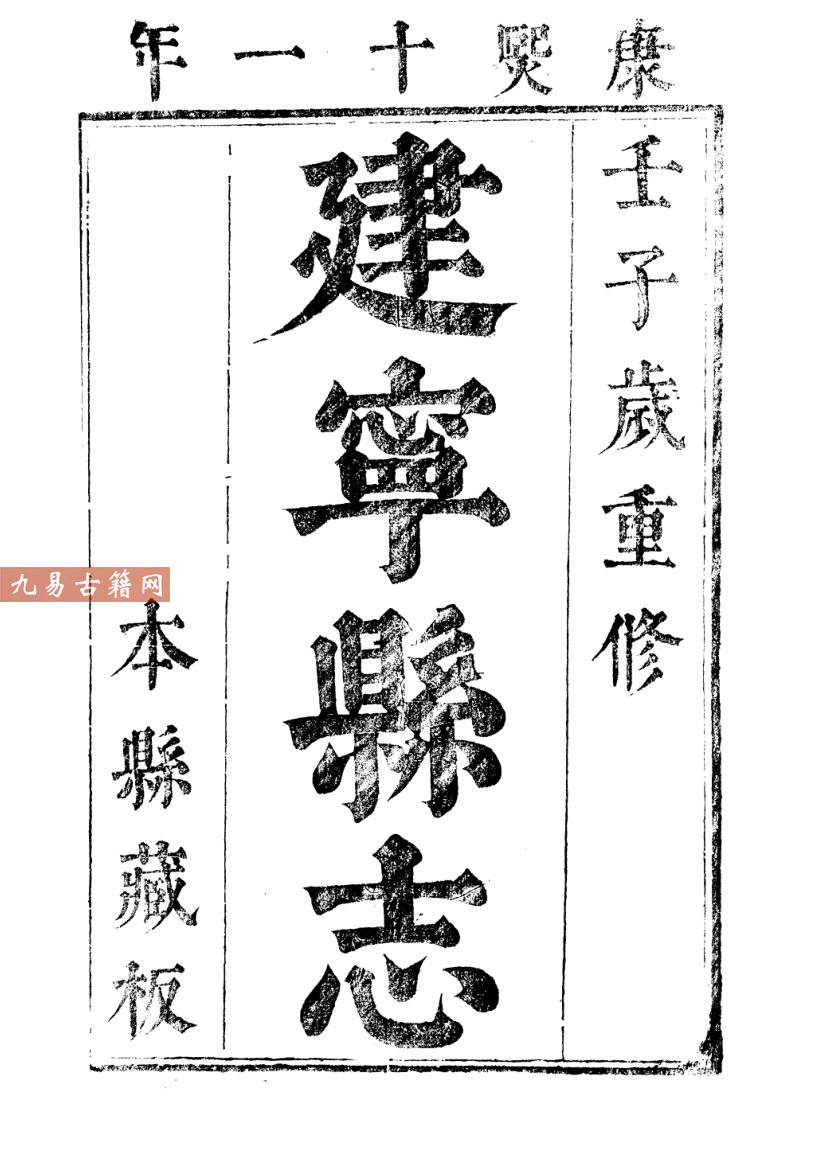 康熙十一年
壬子歲重修
建寧縣志
本縣藏板
九易古籍网